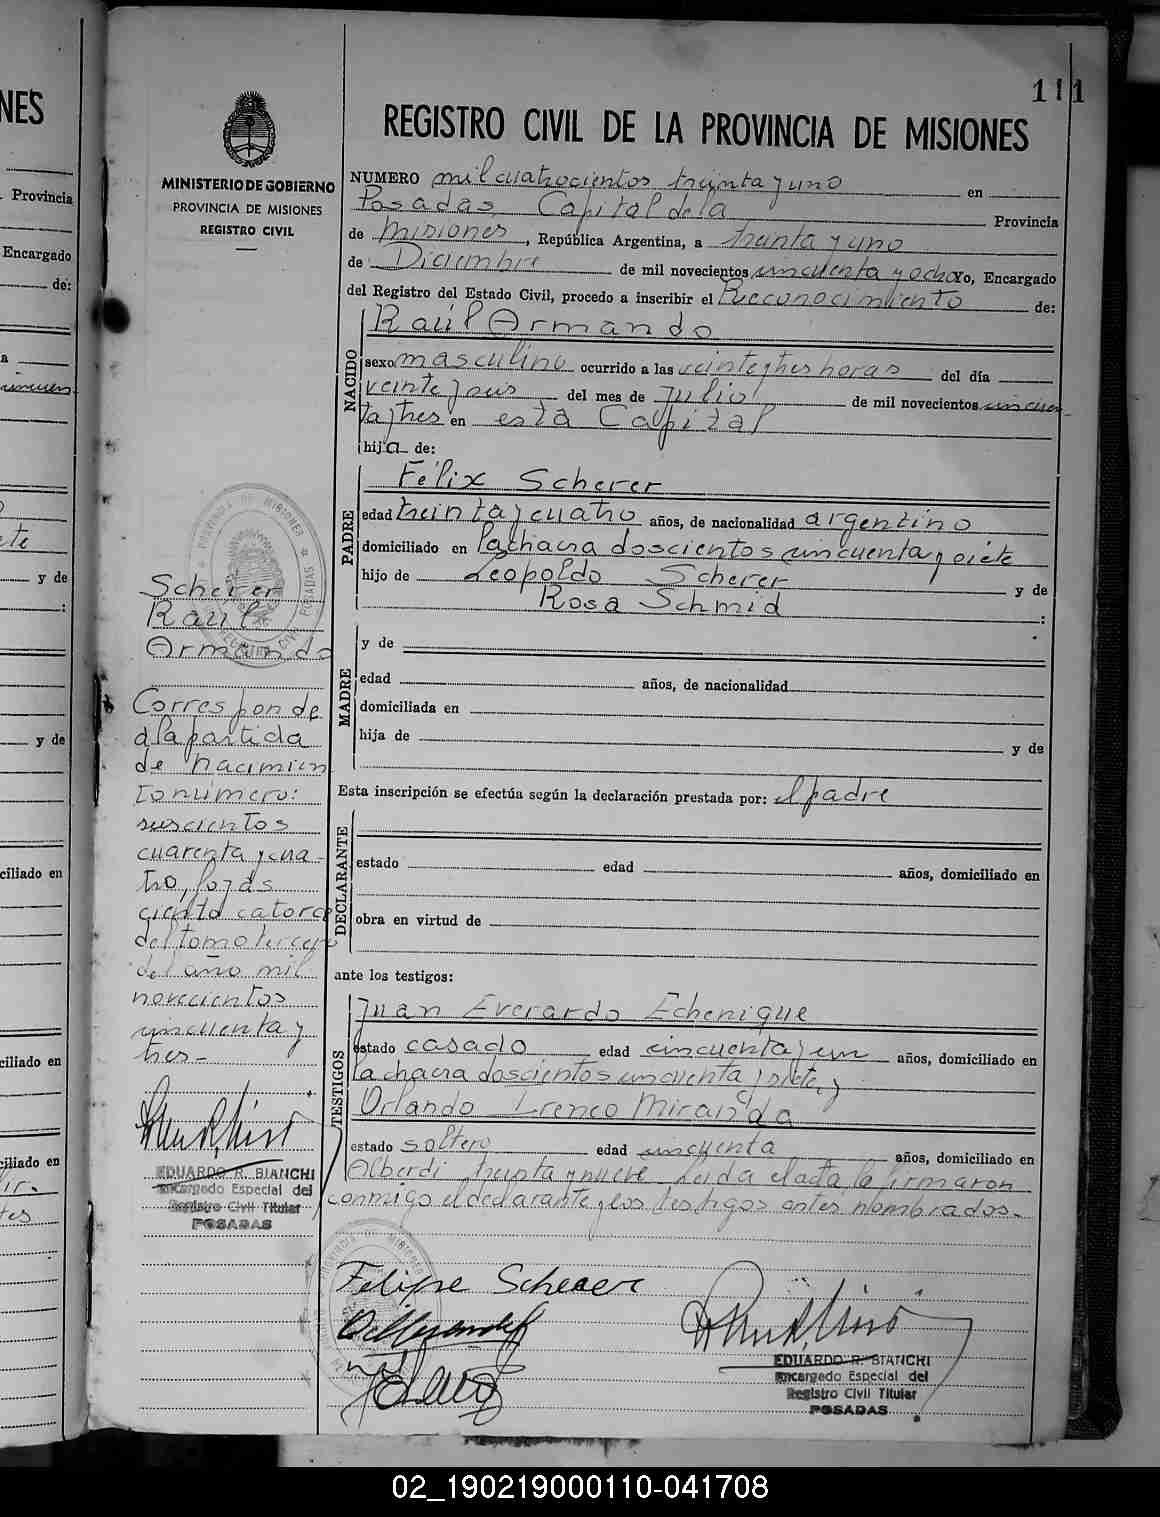 NES
Provincia
Encargado
de:
a
y de
:
y de
ciliado en
ciliado en
ciliado en
111
MINISTERIO DE GOBIERNO
PROVINCIA DE MISIONES
REGISTRO CIVIL
REGISTRO CIVIL DE LA PROVINCIA DE MISIONES
NUMERO mil cuatrocientos treinta y uno en
Posadas Capital de la Provincia
de Misiones, República Argentina, a treinta y uno
de Diciembre de mil novecientos cincuenta y ocho Yo, Encargado
del Registro del Estado Civil, procedo a inscribir el Reconocimiento de:
NACIDO
Raúl Armando
sexo masculino ocurrido a las veintey tres horas del día
veinte y seis del mes de Julio de mil novecientos cincuen-
ta y tres en esta Capital
hija de:
PADRE
Félix Scherer
edad treinta y cuatro años, de nacionalidad argentino
domiciliado en la chacra doscientos cincuenta y siete
hijo de Leopoldo Scherer y de
Rosa Schmid :
MADRE
y de
edad años, de nacionalidad
domiciliada en
hija de y de
Esta inscripción se efectúa según la declaración prestada por: el padre
DECLARANTE
estado edad años, domiciliado en
obra en virtud de
ante los testigos:
TESTIGOS
Juan Everardo Echenique
estado casado edad cincuenta y un años, domiciliado en
la chacra doscientos cincuenta y siete, y
Orlando Ireneo Miranda
estado soltero edad cincuenta años, domiciliado en
Alberdi treinta y nueve. Leida el acta la firmaron
conmigo el declarante y los testigos antes nombrados.
Felipe Scherer
EDUARDO R. BIANCHI
Encargado Especial del
Registro Civil Titular
POSADAS
Scherer
Raúl
Armando
Corresponde
a la partida
de nacimien
to número:
seiscientos
cuarenta y cua-
tro, fojas
ciento catorce
del tomo tercero
del año mil
novecientos
cincuenta y
tres.-
EDUARDO R. BIANCHI
Encargado Especial del
Registro Civil Titular
POSADAS
02_190219000110-041708